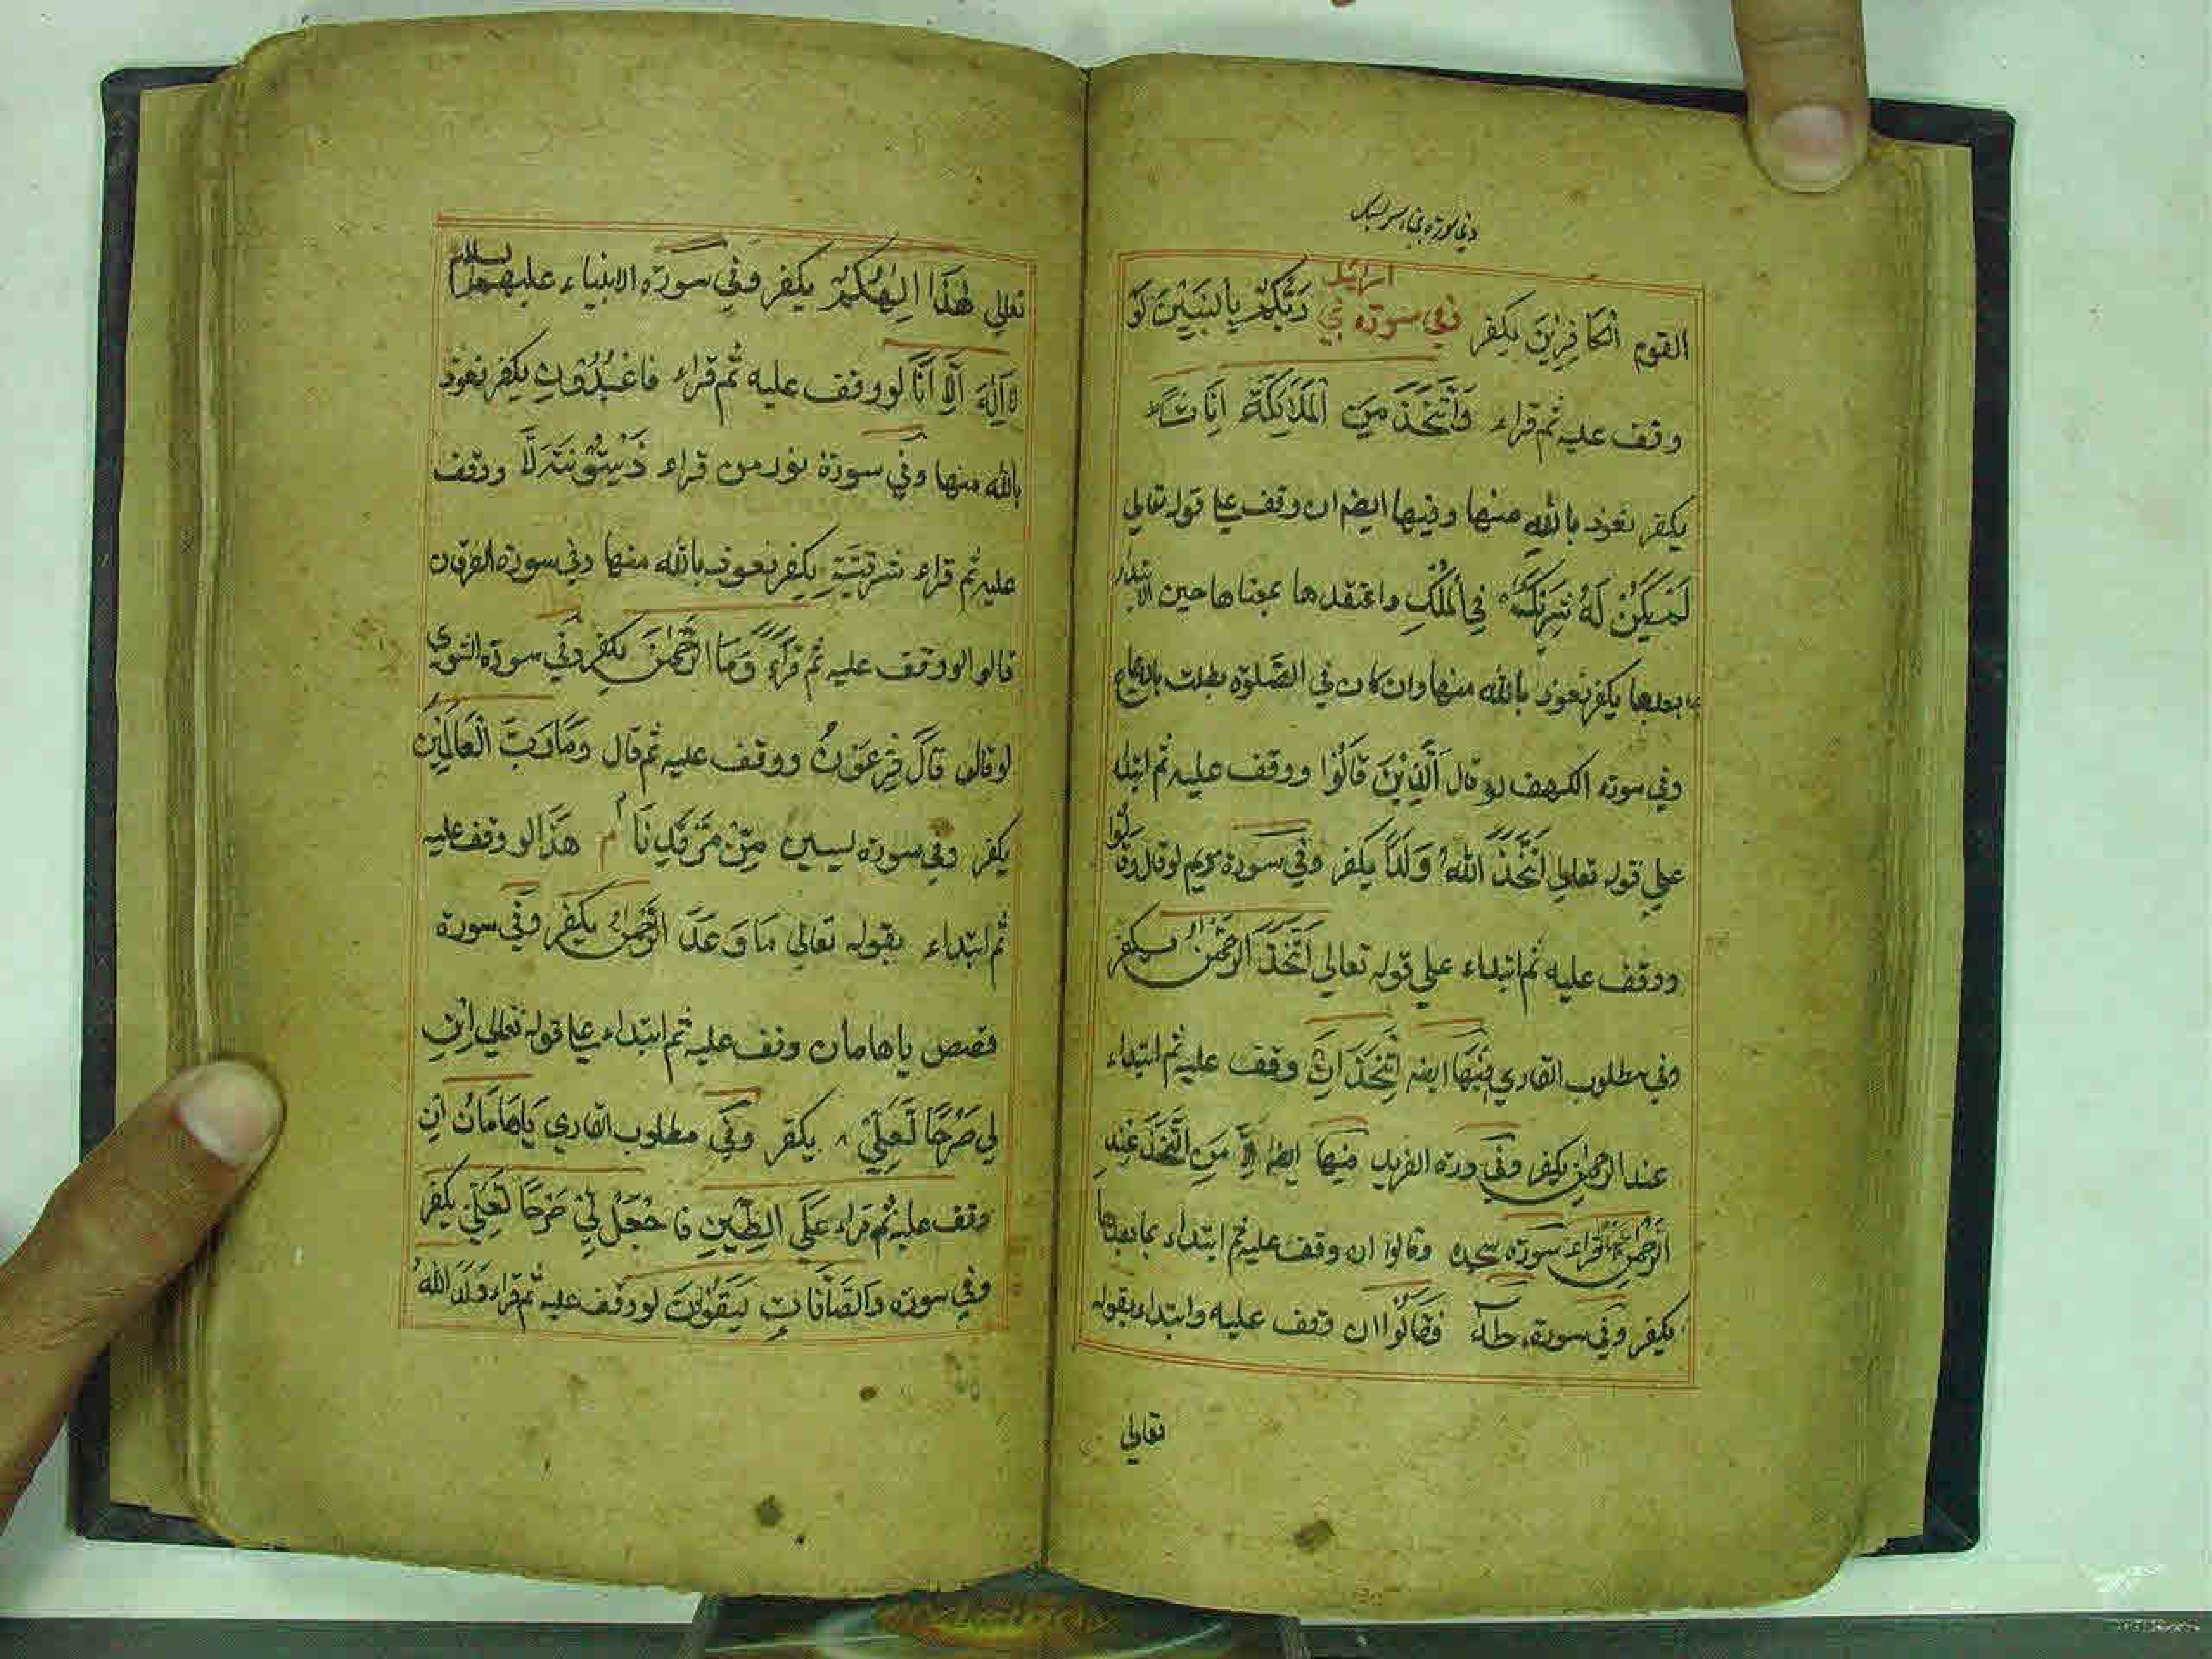 وفي سورة بني اسرائيل
القوم الكَافِرِيْنَ يكفر وفي سورة بني اسرائيل رَبُّكُمْ بِالْبَنِيْنَ لَوْ
وقف عليه ثم قراء وَاتَّخَذَ مِنَ الْمَلَائِكَةِ اِنَاثًا
يكفر نعوذ بالله منها وفيها ايضم ان وقف علي قوله تعالي
لَمْ يَكُنْ لَهُ شَرِيْكٌ فِي الْمُلْكِ واعتقدها بمعناها حين الابتداء
بعدها يكفر نعوذ بالله منها وان كان في الصَّلوٰة بطلت بالاجماع
وفي سورة الكهف لو قال الَّذِيْنَ قَالُوْا ووقف عليه ثم ابتداء
علي قوله تعالي اتَّخَذَ اللهُ وَلَدًا يكفر وفي سورة مريم لو قال وَقَالُوا
ووقف عليه ثم ابتداء علي قوله تعالي اتَّخَذَ الرَّحْمٰنُ يكفر
وفي مطلوب القاري فيها ايضا اتَّخَذَ ان وقف عليه ثم ابتداء
عند الرحمٰن يكفر وفي درة الفريد فيها ايضا اِلَّا مَنِ اتَّخَذَ عِنْدَ
الرَّحْمٰنِ سورة سجده وقالوا ان وقف عليه ثم ابتداء بما بعدها
يكفر وفي سورة طه فَقَالُوْا ان وقف عليه وابتداء بقوله
تعالي
تعالي هٰذَا اِلٰهُكُمْ يكفر وفي سورة الانبياء عليهم السلام
لَا اِلٰهَ اِلَّا اَنَا لو وقف عليه ثم قراء فَاعْبُدُوْنِ يكفر نعوذ
بالله منها وفي سورة نور من قراء زَيْتُوْنَةٍ لَّا ووقف
عليه ثم قراء شَرْقِيَّةٍ يكفر نعوذ بالله منها وفي سورة الفرقان
قالوا لو وقف عليه ثم قراء وَمَا الرَّحْمٰنُ يكفر وفي سورة
لو قال قَالَ فِرْعَوْنُ ووقف عليه ثم قال وَمَا رَبُّ الْعَالَمِيْنَ
يكفر وفي سورة يسين مِنْ مَّرْقَدِنَا م هَذَا لو وقف عليه
ثم ابتداء بقوله تعالي مَا وَعَدَ الرَّحْمٰنُ يكفر وفي سورة
قصص ياهامان وقف عليه ثم ابتداء علي قوله تعالي ابْنِ
لِي صَرْحًا لَّعَلِّيْ يكفر وفي مطلوب القاري يَاهَامَانُ ابْنِ
وقف عليه ثم قراء عَلَى الطِّيْنِ فَاجْعَلْ لِّيْ صَرْحًا لَّعَلِّيْ يكفر
وفي سورة والصَّافَّاتِ لَيَقُوْلُوْنَ لو وقف عليه ثم قراء وَلَدَ اللهُ